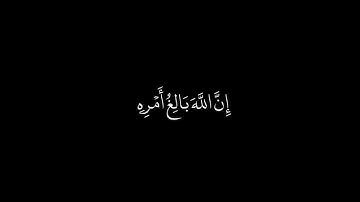 إِنَّ اللَّهَ بَالِغُ أَمْرِهِ